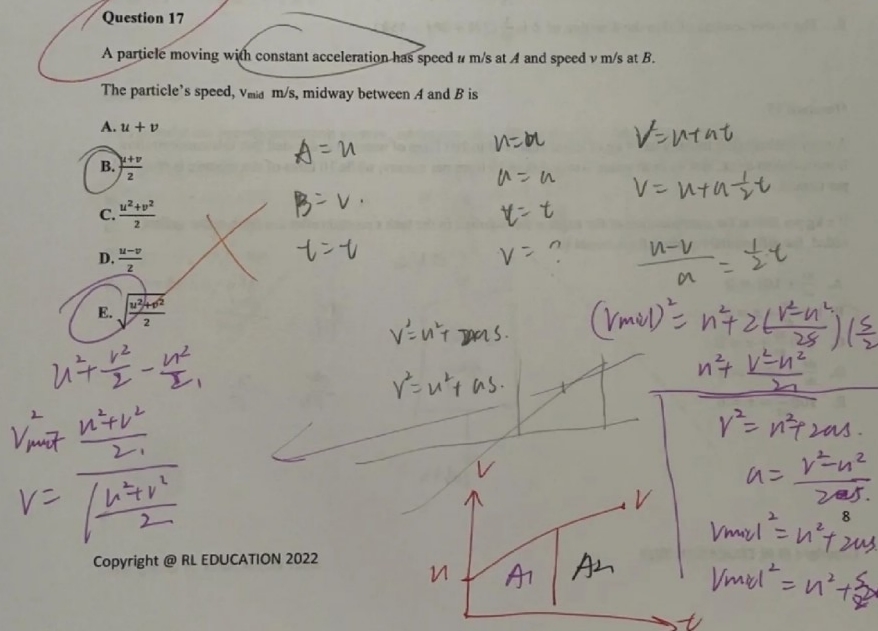 Question 17
A particle moving with constant acceleration has speed u m/s at A and speed v m/s at B.
The particle's speed, vmid m/s, midway between A and B is
A. u + v
B. u+v/2
C. u²+v²/2
D. u−v/2
E. √(u²+v²/2)
A = u
B = v.
t = t
u = u
a = a
t = t
v = ?
V = u + at
V = u + a ½ t
u − v / a = ½ t
V² = u² + 2as.
V² = u² + as.
(Vmid)² = u² + 2(V²−u²/2s)(s/2
u² + V²−u²/2
V² = u² + 2as.
a = V²−u²/2s.
Vmid² = u² + 2as
Vmid² = u² +
u² + V²/2 − u²/2
u² + V²/2
V = √(u²+V²/2)
V
u
V
A1
A2
t
8
Copyright @ RL EDUCATION 2022